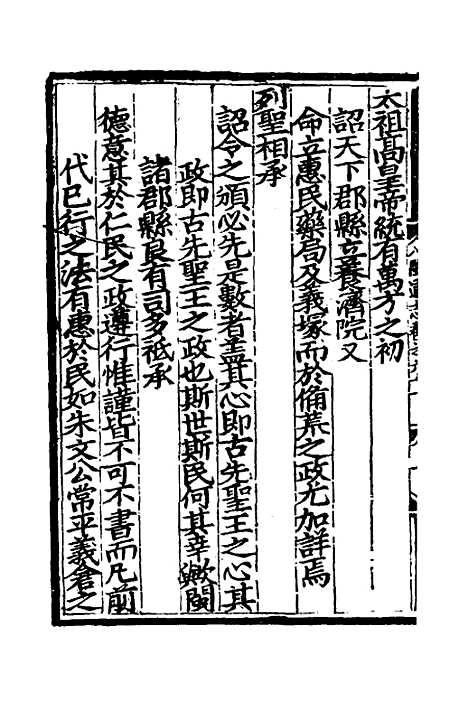 太祖高皇帝統有萬方之初
詔天下郡縣立養濟院又
命立惠民藥局及義塚而於備荒之政尤加詳焉
列聖相承
詔令之頒必先是數者盖其心即古先聖王之心其
政即古先聖王之政也斯世斯民何其幸歟閩
諸郡縣良有司多祗承
德意其於仁民之政遵行惟謹皆不可不書而凡前
代已行之法有惠於民如朱文公常平義倉之